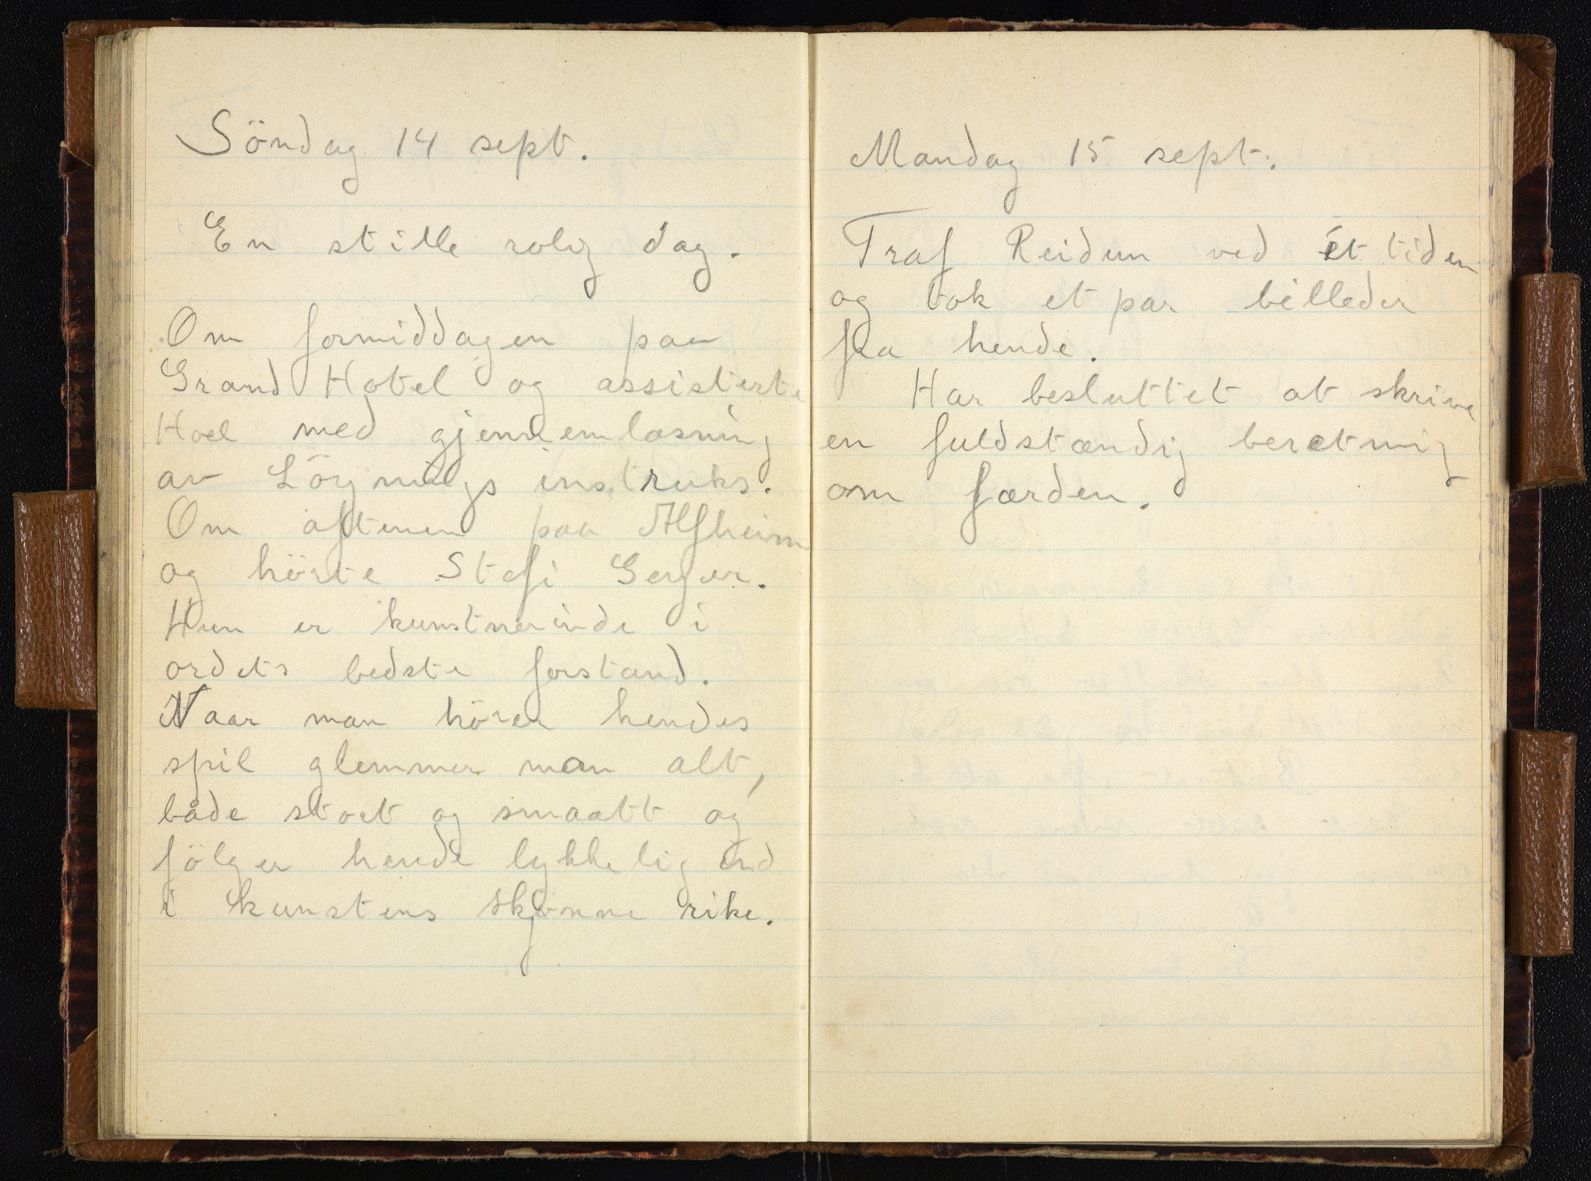 Söndag 14 sept.
En stille rolig dag.
Om formiddagen paa
Grand Hotel og assisterte
Hoel med gjennemlæsning
av instruks.
Om aftenen paa Alfheim
og hörte Stefi Geyer.
Hun er kunstnerinde i
ordets bedste forstand.
Naar man hörer hendes
spil glemmer man alt,
både stort og smaatt og
fölger hende lykkelig ind
i kunstens skjönne rike.
Mandag 15 sept.
Traf Reidun ved ét tiden
og tok et par billeder
fra hende.
Har besluttet at skrive
en fuldstændig beretning
om færden.